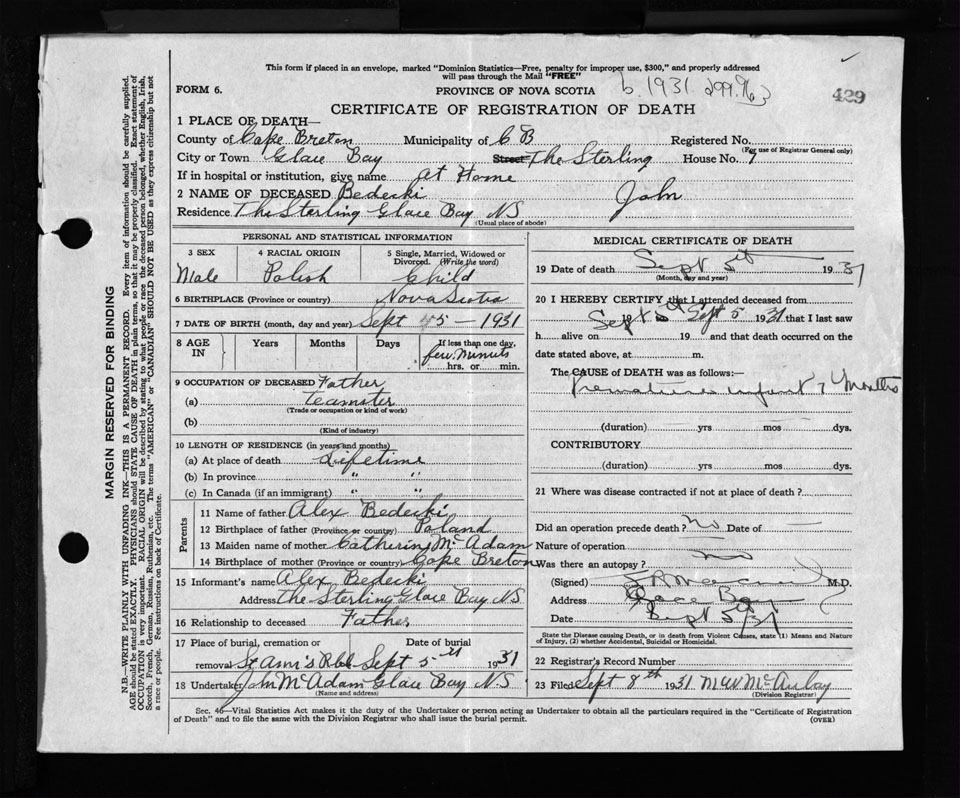 This form if placed in an envelope, marked "Dominion Statistics—Free, penalty for improper use, $300," and properly addressed
will pass through the Mail "FREE"
FORM 6.
PROVINCE OF NOVA SCOTIA
b. 1931
429
CERTIFICATE OF REGISTRATION OF DEATH
1 PLACE OF DEATH—
County of Cape Breton Municipality of C B Registered No.
(For use of Registrar General only)
City or Town Glace Bay Street The Sterling House No. 7
If in hospital or institution, give name at Home
2 NAME OF DECEASED Bedecki John
Residence The Sterling Glace Bay NS
(Usual place of abode)
PERSONAL AND STATISTICAL INFORMATION
3 SEX 4 RACIAL ORIGIN 5 Single, Married, Widowed or
Divorced. (Write the word)
Male Polish Child
6 BIRTHPLACE (Province or country) Nova Scotia
7 DATE OF BIRTH (month, day and year) Sept 5 – 1931
8 AGE IN Years Months Days If less than one day,
few Minuts
hrs. or min.
9 OCCUPATION OF DECEASED Father
(a) teamster
(Trade or occupation or kind of work)
(b)
(Kind of industry)
10 LENGTH OF RESIDENCE (in years and months)
(a) At place of death Lifetime
(b) In province " "
(c) In Canada (if an immigrant) " "
Parents
11 Name of father Alex Bedecki
12 Birthplace of father (Province or country) Poland
13 Maiden name of mother Catherine McAdam
14 Birthplace of mother (Province or country) Cape Breton
15 Informant's name Alex Bedecki
Address The Sterling Glace Bay NS
16 Relationship to deceased Father
17 Place of burial, cremation or Date of burial
removal St Ann's Sept 5th 1931
18 Undertaker John McAdam Glace Bay NS
(Name and address)
MEDICAL CERTIFICATE OF DEATH
19 Date of death Sept 5th 1931
(Month, day and year)
20 I HEREBY CERTIFY that I attended deceased from
Sept 5th 19 Sept 5 1931 that I last saw
h alive on 19 and that death occurred on the
date stated above, at m.
The CAUSE of DEATH was as follows:—
Premature infant 7 Months
(duration) yrs mos dys.
CONTRIBUTORY.
(duration) yrs mos dys.
21 Where was disease contracted if not at place of death?
Did an operation precede death? no Date of —
Nature of operation —
Was there an autopsy? no
(Signed) M.D.
Address Glace Bay
Date Sept 5th 31
State the Disease causing Death, or in death from Violent Causes, state (1) Means and Nature
of Injury, (2) whether Accidental, Suicidal or Homicidal.
22 Registrar's Record Number
23 Filed Sept 8th 1931 McAulay
(Division Registrar)
Sec. 46—Vital Statistics Act makes it the duty of the Undertaker or person acting as Undertaker to obtain all the particulars required in the "Certificate of Registration
of Death" and to file the same with the Division Registrar who shall issue the burial permit.
(OVER)
MARGIN RESERVED FOR BINDING
N.B.—WRITE PLAINLY WITH UNFADING INK—THIS IS A PERMANENT RECORD. Every item of information should be carefully supplied.
AGE should be stated EXACTLY. PHYSICIANS should STATE CAUSE OF DEATH in plain terms, so that it may be properly classified. Exact statement of
OCCUPATION is very important. RACIAL ORIGIN will be described by stating to what people or race the deceased person belonged, whether English, Irish,
Scotch, French, German, Russian, Ruthenian, etc. The terms "AMERICAN" or "CANADIAN" SHOULD NOT BE USED as they express citizenship but not
a race or people. See instructions on back of Certificate.